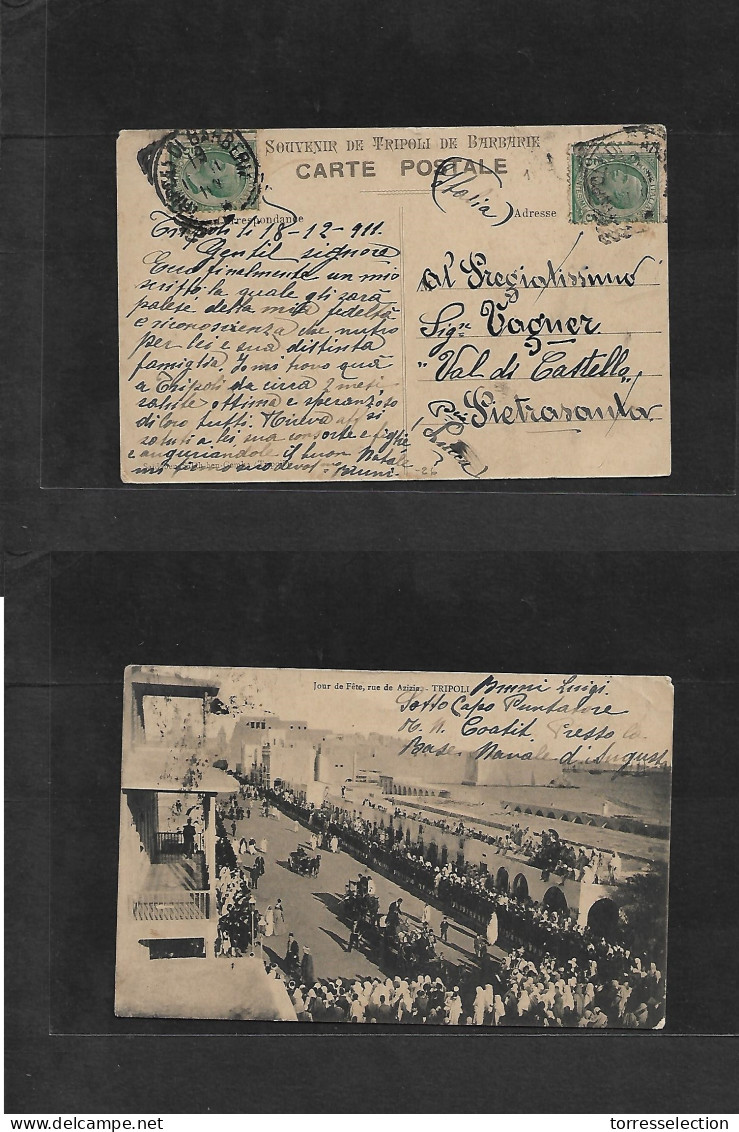 SOUVENIR DE TRIPOLI DE BARBARIE
CARTE POSTALE
(Italia)
Correspondance
Adresse
Tripoli li 18-12-911.
Gentil signore
Eccoti finalmente un mio
scritto, la quale gli sarà
palese della mia fedeltà
e riconoscienza che nutro
per lei e sua distinta
famiglia. Io mi trovo quà
a Tripoli da circa 2 mesi
salute ottima e speranzoso
di loro tutti. Riceva aff si
saluti a lei, sua consorte e figlie
e augurandole il buon Natale
mi
Bruni
Al Pregiatissimo
Sigr. Vagner
"Val di Castello"
Pietrasanta
(Lucca)
Jour de Fête, rue de Azizia. - TRIPOLI
Bruni Luigi.
Sotto Capo Puntatore
R. N. Coatit Presso la
Base Navale d'Augusta
torresselection